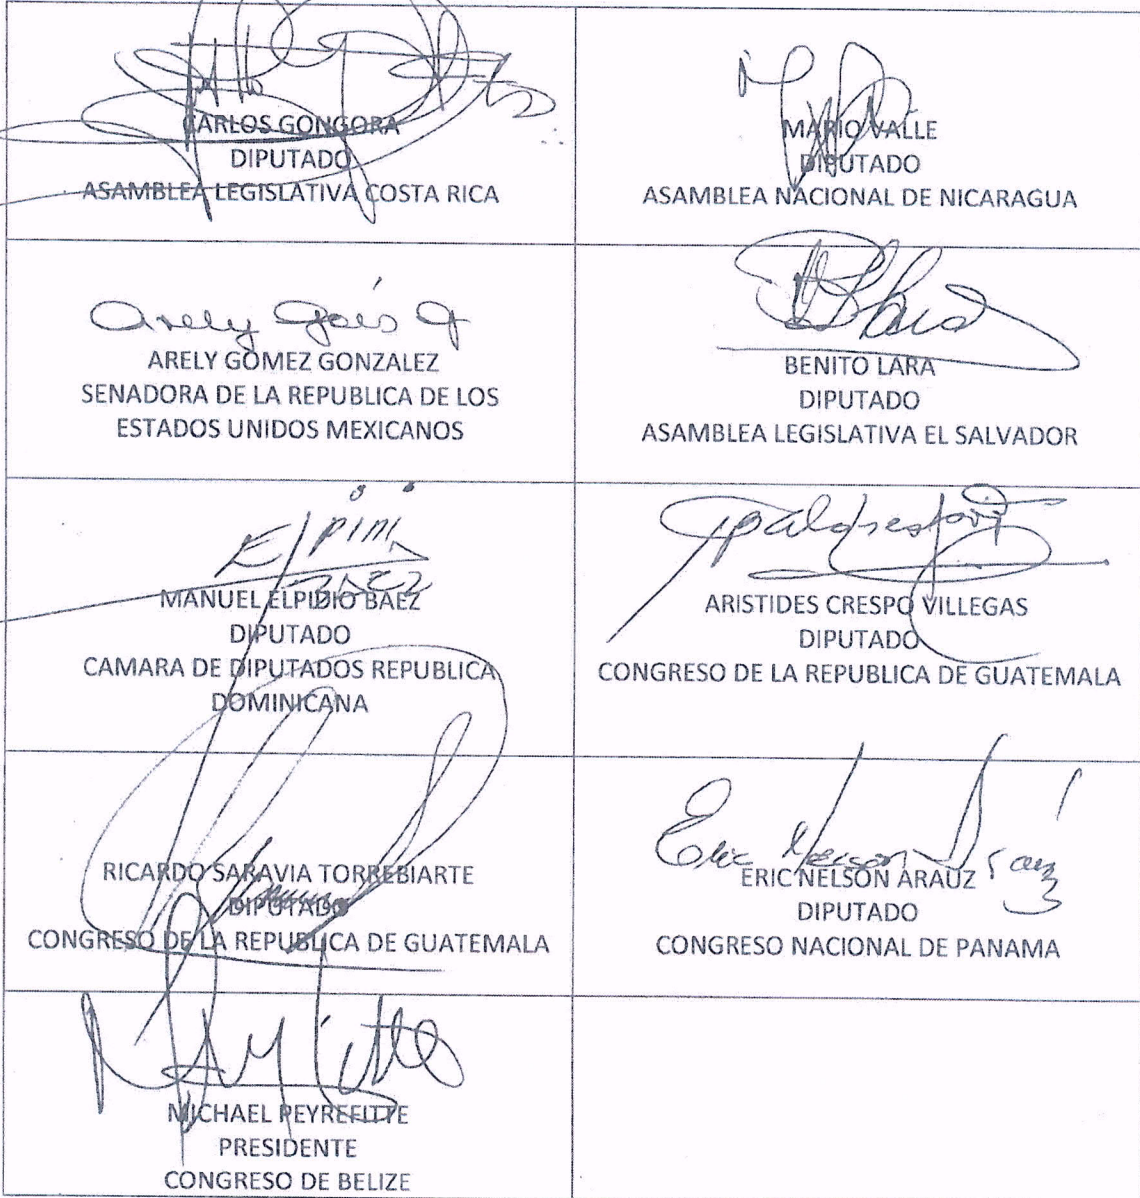 CARLOS GONGORA
DIPUTADO
ASAMBLEA LEGISLATIVA COSTA RICA
MARIO VALLE
DIPUTADO
ASAMBLEA NACIONAL DE NICARAGUA
Arely
ARELY GOMEZ GONZALEZ
SENADORA DE LA REPUBLICA DE LOS
ESTADOS UNIDOS MEXICANOS
BENITO LARA
DIPUTADO
ASAMBLEA LEGISLATIVA EL SALVADOR
MANUEL ELPIDIO BAEZ
DIPUTADO
CAMARA DE DIPUTADOS REPUBLICA
DOMINICANA
ARISTIDES CRESPO VILLEGAS
DIPUTADO
CONGRESO DE LA REPUBLICA DE GUATEMALA
RICARDO SARAVIA TORREBIARTE
DIPUTADO
CONGRESO DE LA REPUBLICA DE GUATEMALA
Eric Nelson Araúz
ERIC NELSON ARAUZ
DIPUTADO
CONGRESO NACIONAL DE PANAMA
MICHAEL PEYREFITTE
PRESIDENTE
CONGRESO DE BELIZE